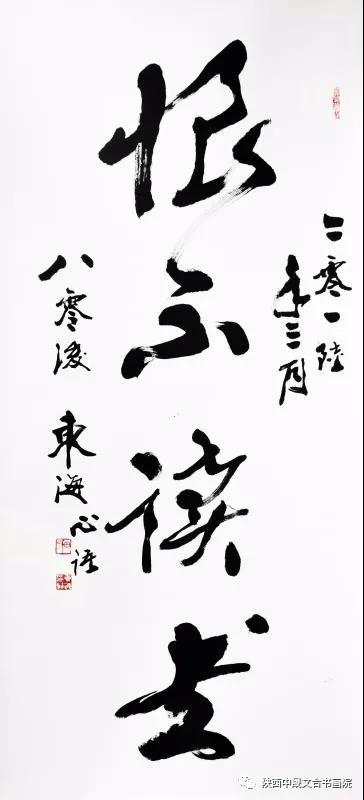 二零一陸
年三月
恨不读书
八零後 東海心语
陕西中晟文合书画院